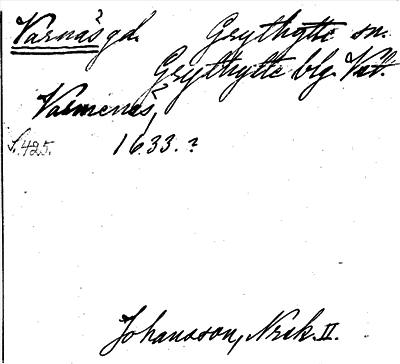 Varnäs gd. Grythytte sn.
Grythytte blg. Vstl.
Varmenäs,
S. 425. 1633. ?
Johansson, Nrek. II.